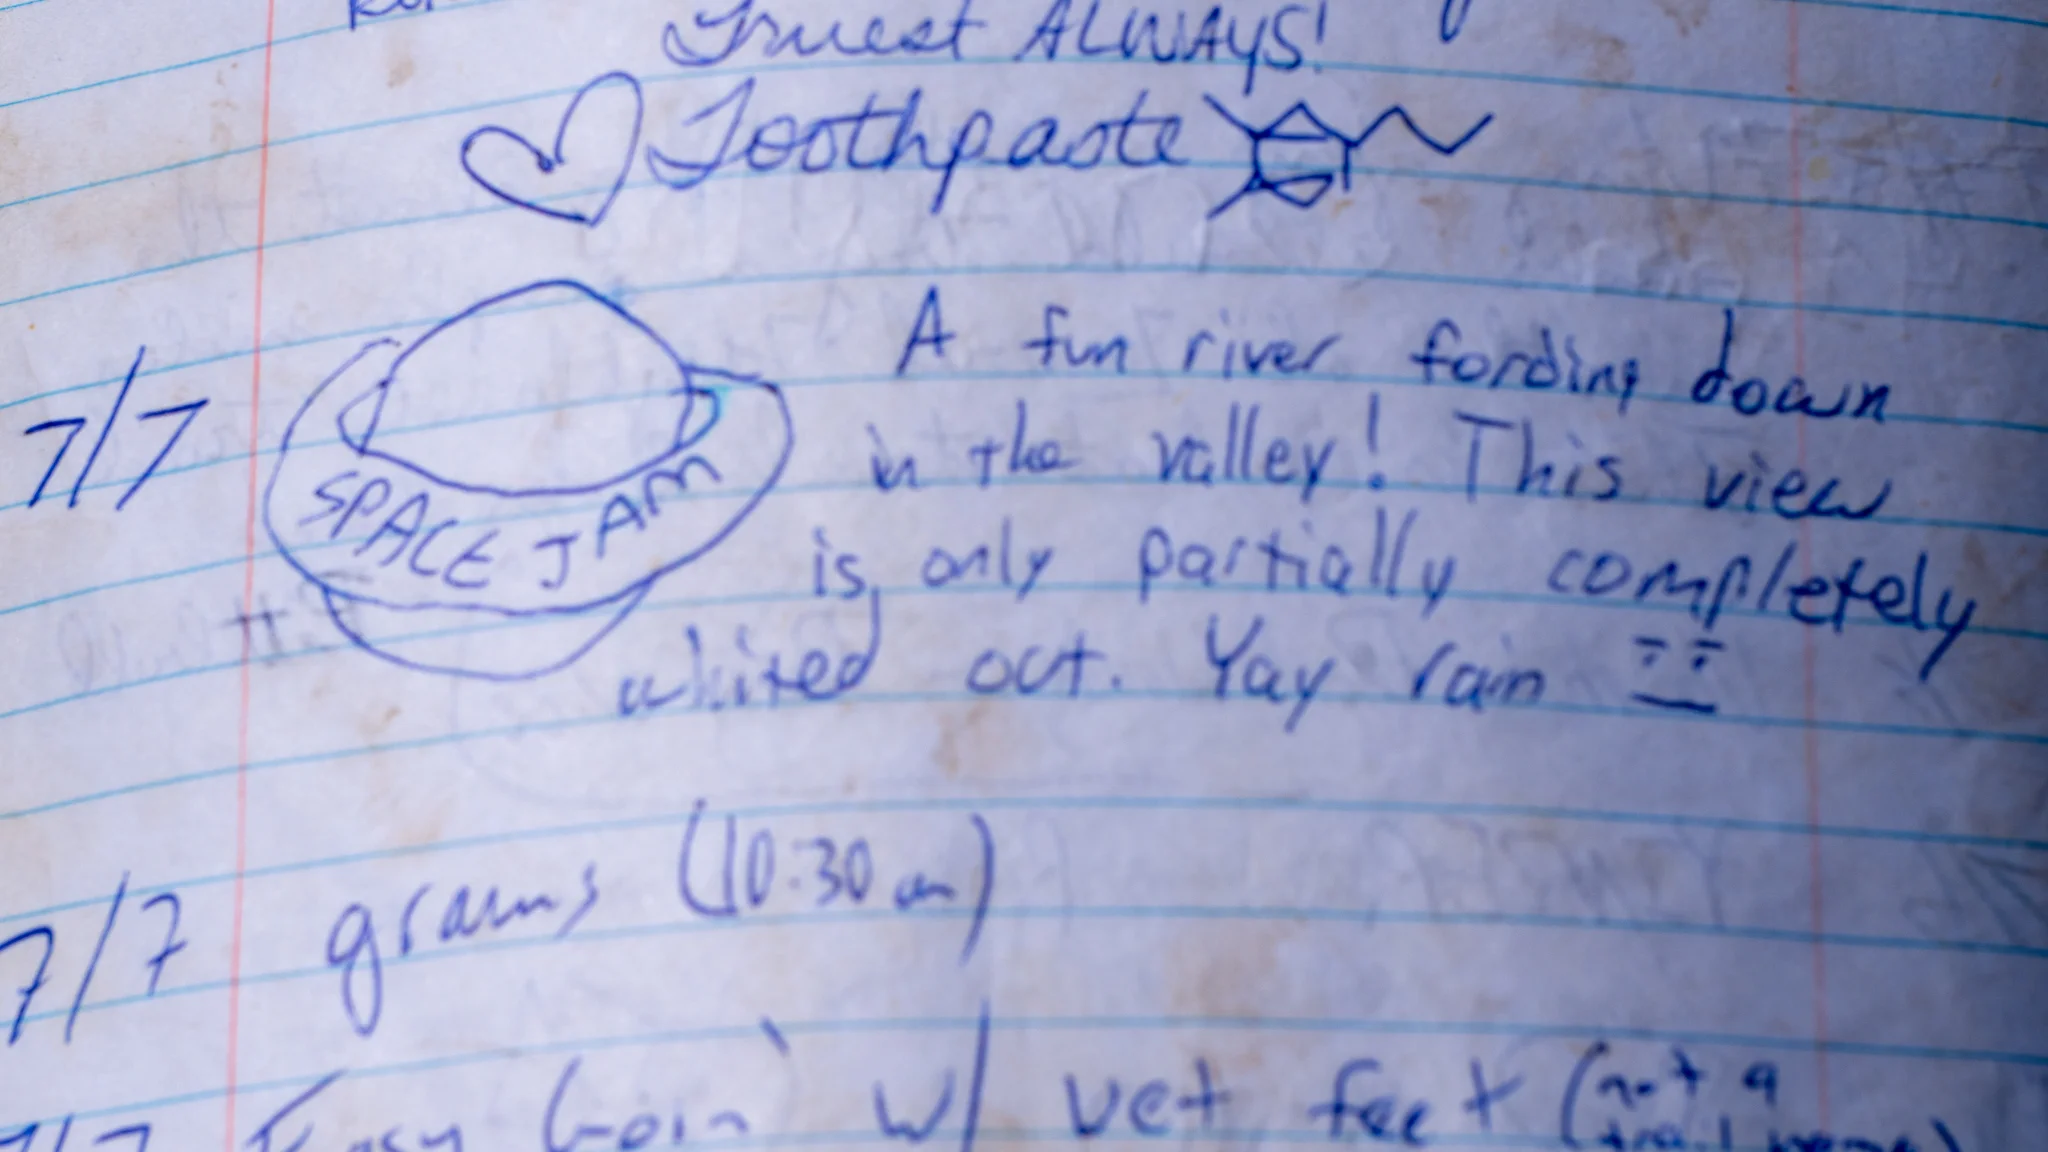 Truest ALWAYS!
Toothpaste
7/7 SPACE JAM A fun river fording down
in the valley! This view
is only partially completely
whited out. Yay rain
7/7 grams (10:30 am)
7/7 Easy Goin' w/ wet feet (not a
trail name)